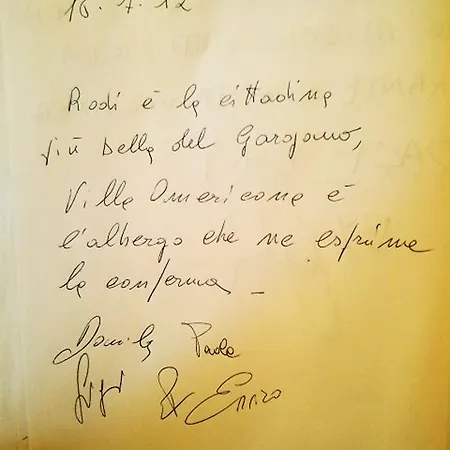 16.7.12
Rodi è la cittadina
più bella del Gargano,
Villa Americana è
l'albergo che ne esprime
la conferma _
Danila Paola
Gigi & Enrico